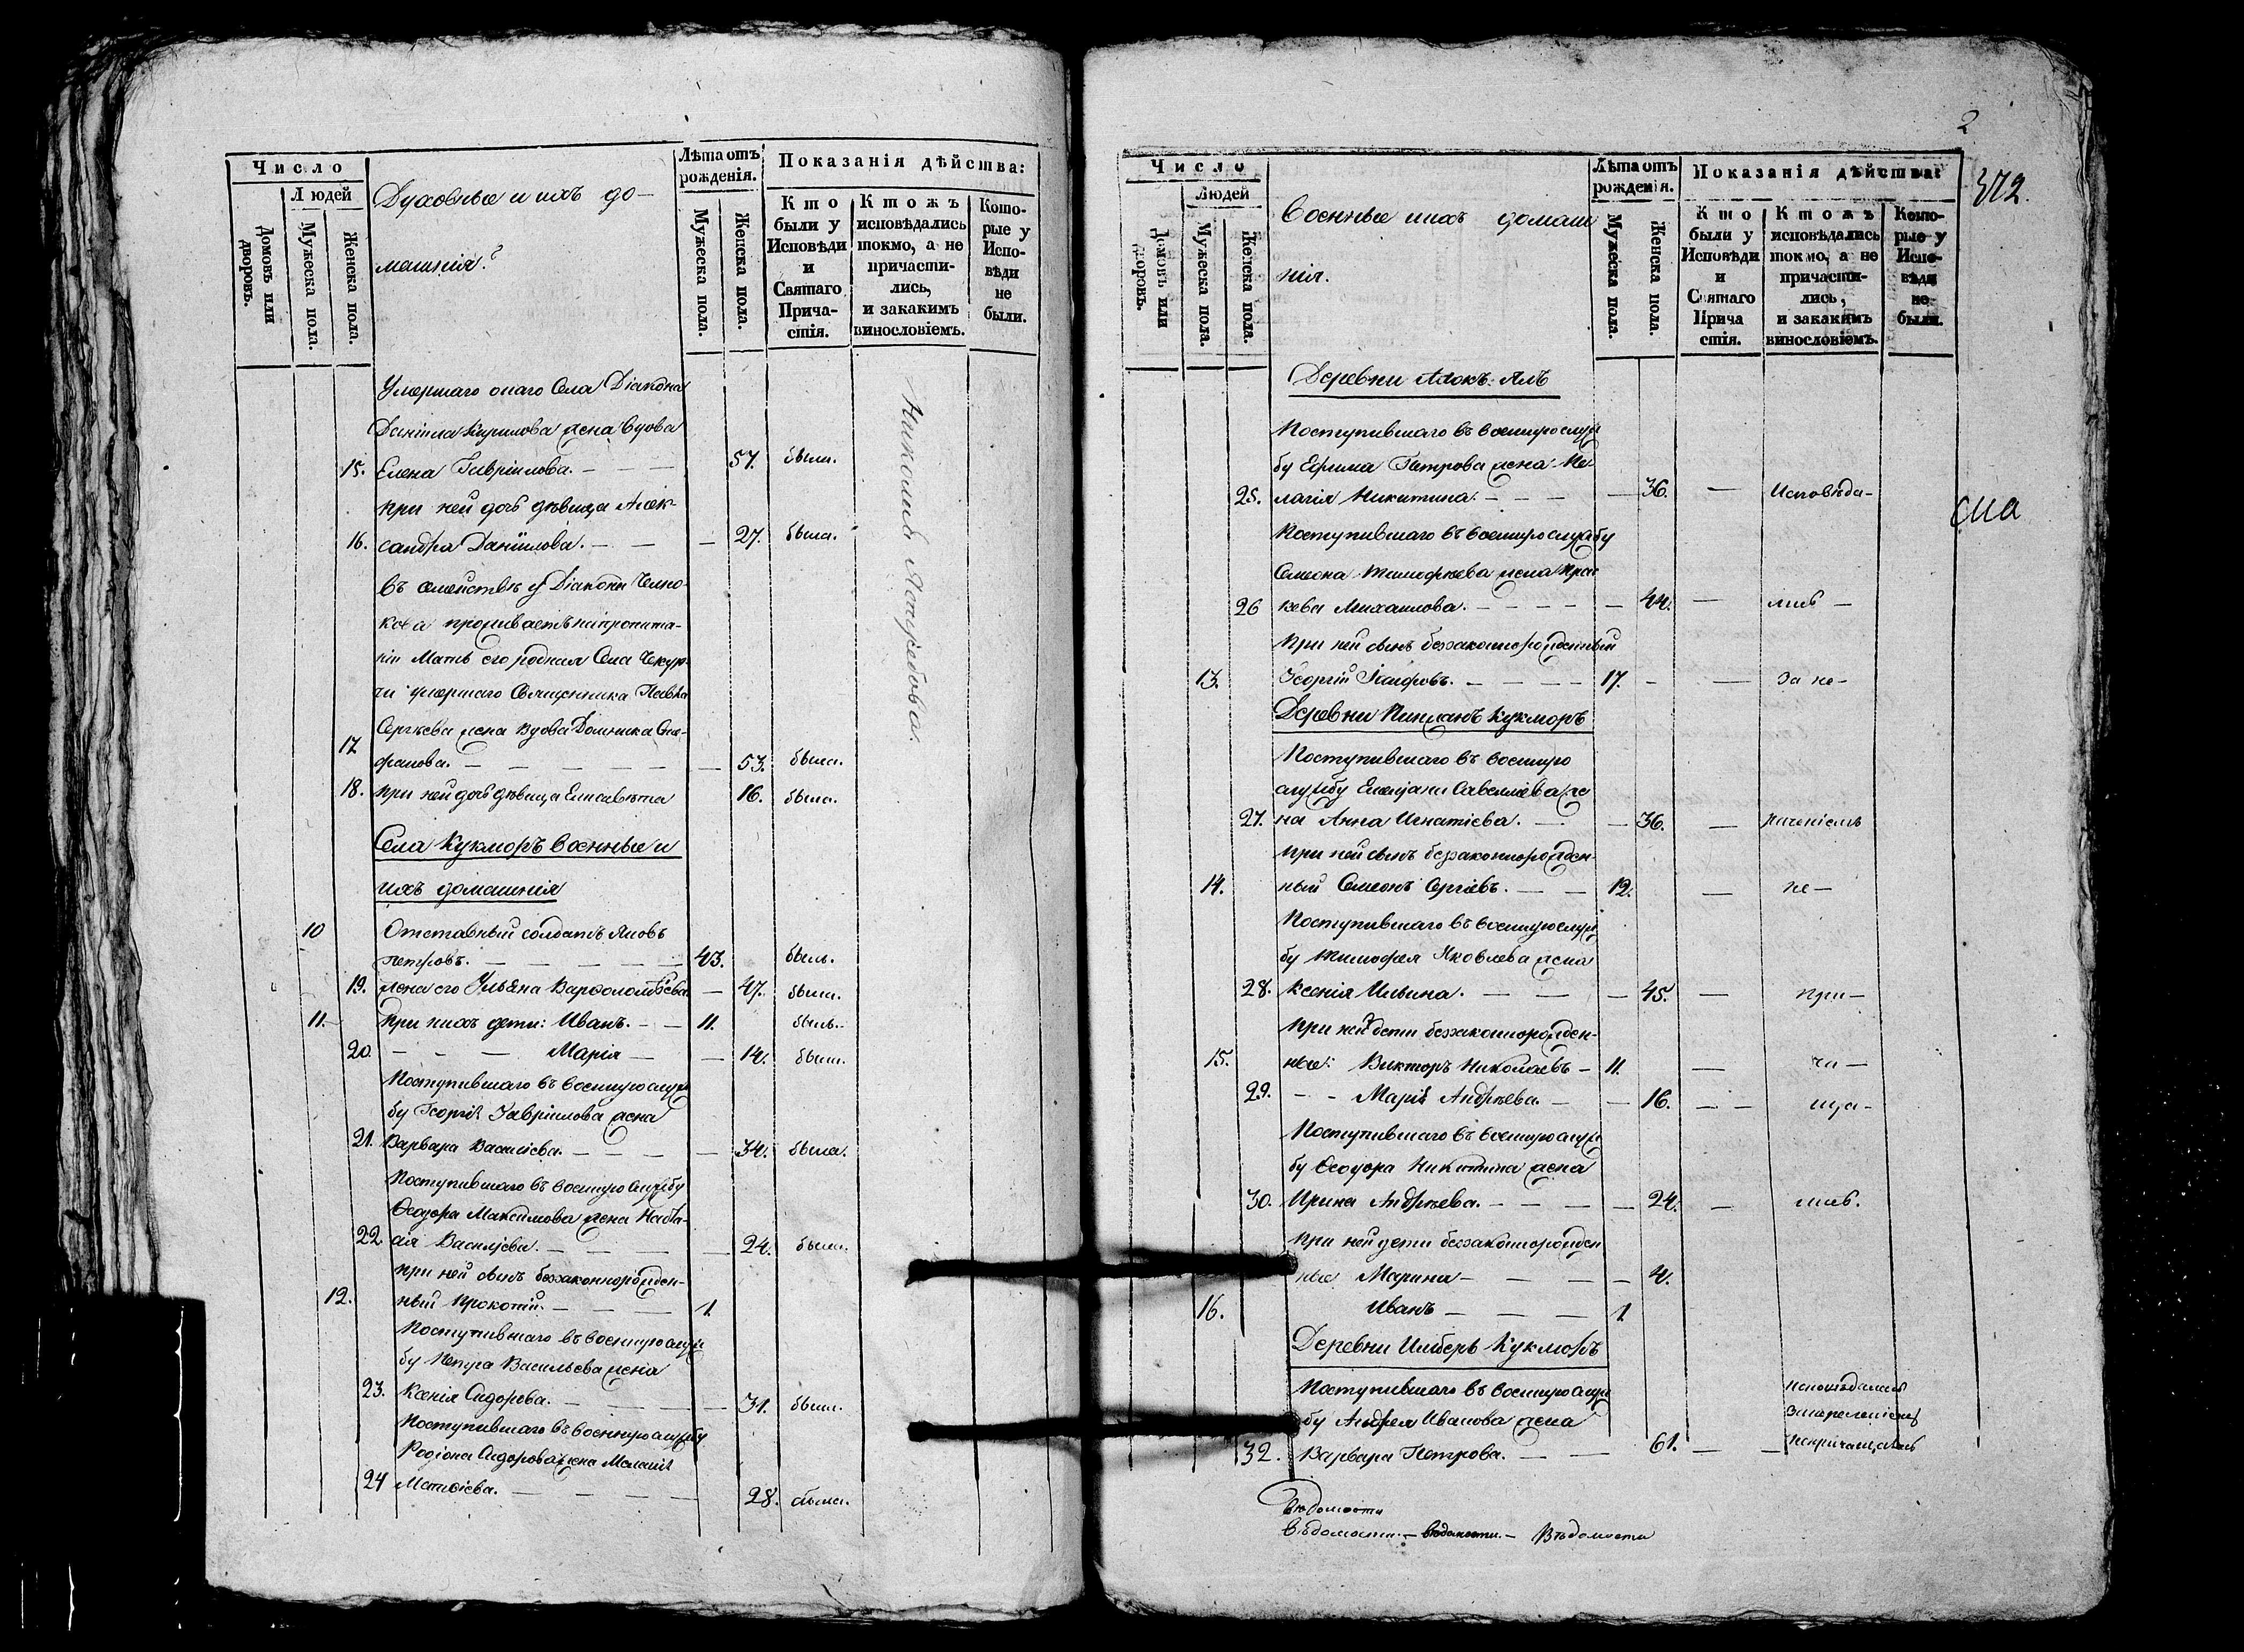 Число
Людей
Домовъ или дворовъ.
Мужеска пола.
Женска пола.
Духовные и ихъ до-
машнія
Лѣта отъ рожденія.
Мужеска пола.
Женска пола.
Показанія дѣйства:
Кто были у Исповѣди и Святаго Прича-стія.
Ктожъ исповѣдались токмо, а не причасти-лись, и закакимъ винословіемъ.
Кото-рые у Испо-вѣди не были.
Умершаго онаго Села Діакона
Даніила Кирилова жена вдова
15. Елена Гавріилова. - - - 57. была.
при ней дочь дѣвица Алек-
16. сандра Даніилова. - - - 27. была.
въ семействѣ у Діакона
проживаетъ на пропита-
ніи Мать его родная Села Чекур-
чи умершаго Священника Павла
Сергѣева жена вдова Домника Сте-
17 фанова. - - - - - - 53. была.
18. при ней дочь дѣвица Елисавета 16. была.
Села Кукморъ военные и
ихъ домашнія
10 Отставный солдатъ
Петровъ. - - - - - 43. былъ.
19. жена его Ульяна Варфоломѣева - 47. была.
11. при нихъ дети: Иванъ. - - 11. былъ.
20. - - - Марія - - 14. была.
Поступившаго въ военную служ
бу Георгія Гавріилова жена
21. Варвара Василіева. - - - - - 34. была.
Поступившаго въ военную службу
Ѳеодора Максимова жена Ната-
22. лія Василіева. - - - - - 24. была.
при ней сынъ беззаконнорожден-
12. ный Прокопій. - - - 1.
Поступившаго въ военную служ
бу Петра Васильева жена
23. Ксенія Сидорова. - - - - 31. была.
Поступившаго въ военную службу
Родіона Сидорова жена Маланія
24 Матвѣева. - - - - 28. была.
Николай
2
372.
Число
Людей
Домовъ или дворовъ.
Мужеска пола.
Женска пола.
Военные ихъ домаш
нія.
Лѣта отъ рожденія.
Мужеска пола.
Женска пола.
Показанія дѣйства:
Кто были у Исповѣди и Святаго Прича стія.
Ктожъ исповѣдались токмо, а не причасти-лись, и закакимъ винословіемъ.
Кото-рые у Испо-вѣди не были.
Деревни
Поступившаго въ военную служ
бу Ефима Петрова жена Пе-
25. лагія Никитина. - - - - 36. - Исповѣда-
Поступившаго въ военную службу
Симеона Тимофѣева жена Прас
26 кева Михаилова. - - - - - 44. - лись -
при ней сынъ беззаконнорожденный
13. Георгій - - - - 17. - - За не-
Деревни Кукморъ
Поступившаго въ военную
службу Савелліева же
27. на Анна Игнатіева. - - 36. - раченіемъ
при ней сынъ беззаконнорожден-
14. ный Симеонъ Сергіевъ. - - 12. - не -
Поступившаго въ военную служ
бу Тимофея Яковлева жена
28. Ксенія Ильина. - - - 45. - при -
при ней дети беззаконнорожден-
15. ные: Викторъ Николаевъ - 11. - ча -
29. - - Марія Андрѣева. - - 16. - - ща -
Поступившаго въ военную служ
бу Ѳеодора Никитина жена
30. Ирина Андрѣева. - - - - 24. - лись.
при ней дети беззаконнорожден
ные Марина - - - - 4.
16. Иванъ - - - 1
Деревни Кукморъ
Поступившаго въ военную служ исповѣдалась
бу Андрея Иванова жена
32. Варвара Петрова. - - 61. - - непричащалась
Вѣдомости
вѣдомости. - вѣдомости. - Вѣдомости